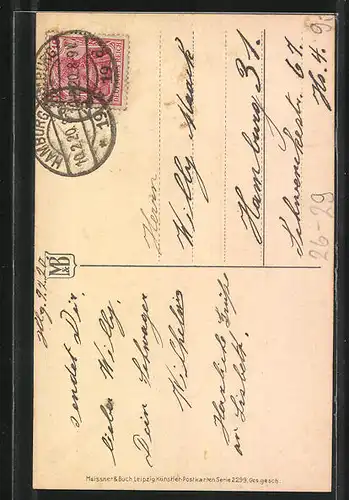 Hbg. 9.2.20
sendet Dir
lieber Willy,
Dein Schwager
Wilhelm
Herzliche Grüße
an Lisbeth.
M&B
HAMBURG
10.2.20.
19
Herrn
Willy
Hamburg 31.
67
H. 4.
26-29
Meissner & Buch, Leipzig. Künstler-Postkarten Serie 2299. Ges. gesch.